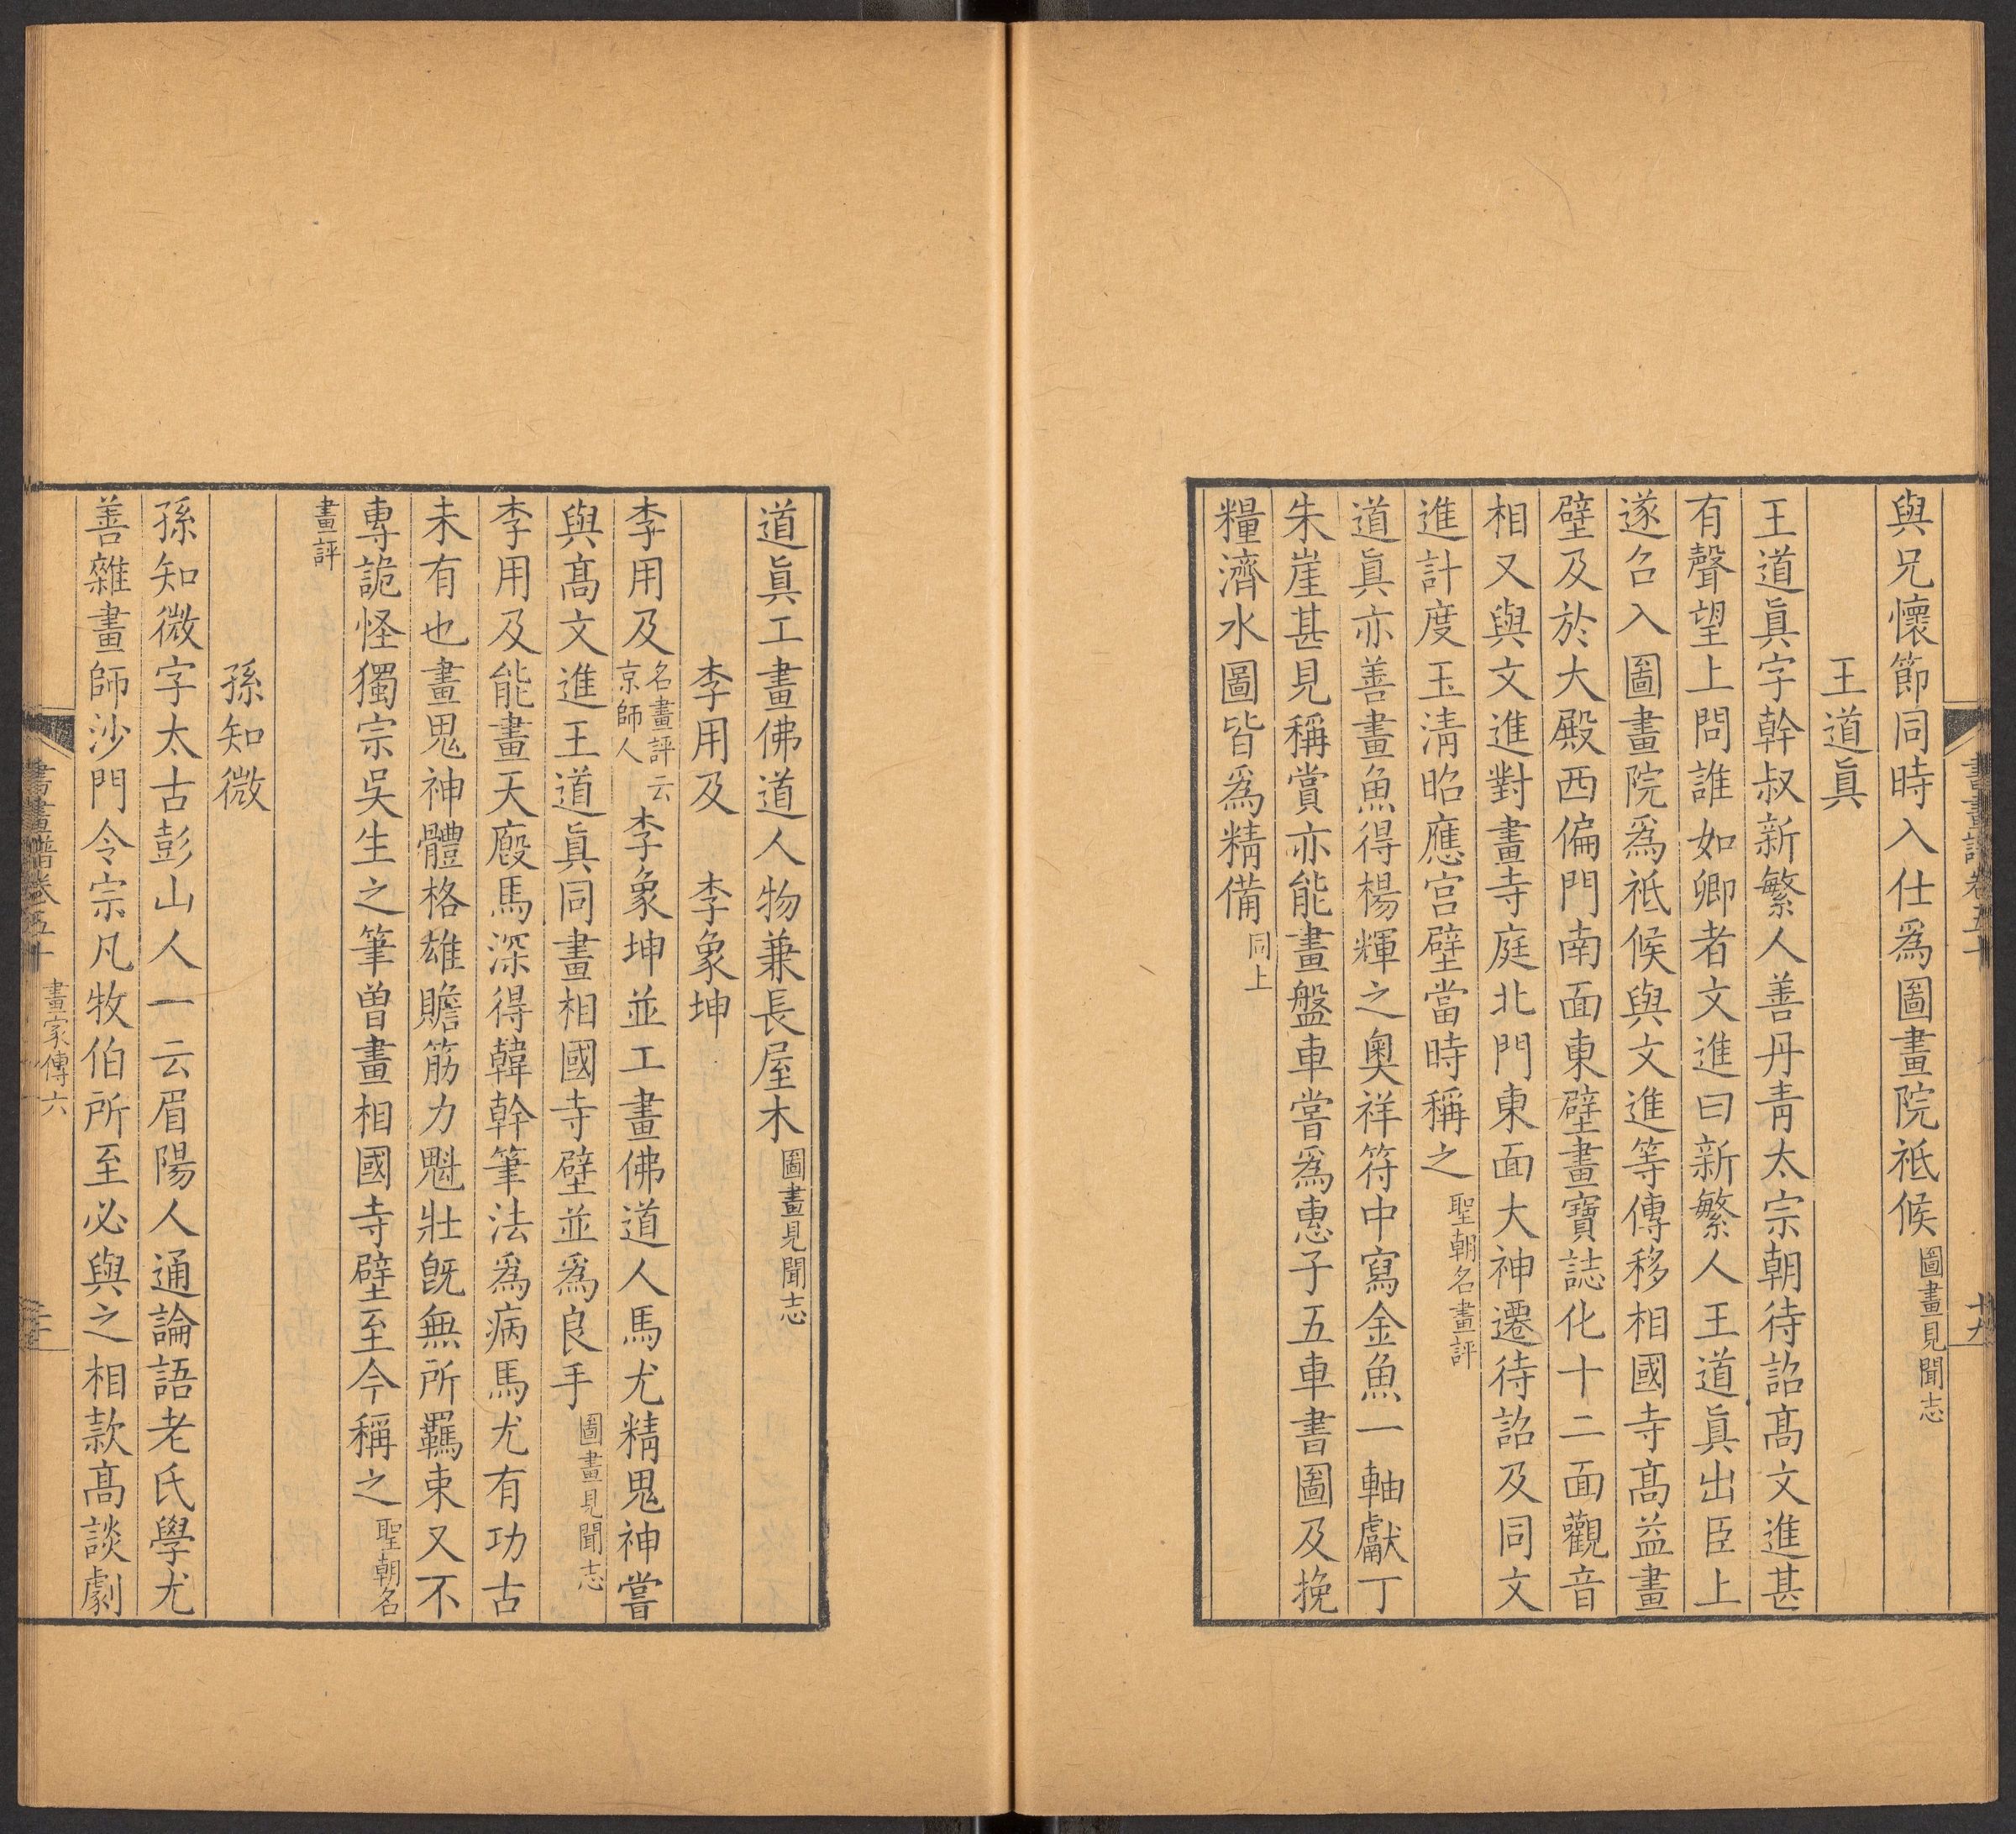 與兄懷節同時入仕爲圖畫院祗候圖畫見聞志
王道眞
王道眞字幹叔新繁人善丹青太宗朝待詔髙文進甚
有聲望上問誰如卿者文進曰新繁人王道眞出臣上
遂召入圖畫院爲祗候與文進等傳移相國寺髙益畫
壁及於大殿西偏門南面東壁畫寶誌化十二面觀音
相又與文進對畫寺庭北門東面大神遷待詔及同文
進計度玉淸昭應宫壁當時稱之聖朝名畫評
道眞亦善畫魚得楊輝之奥祥符中寫金魚一軸獻丁
朱崖甚見稱賞亦能畫盤車嘗爲惠子五車書圖及挽
糧濟水圖皆爲精備同上
書畫譜卷五十
十九
道眞工畫佛道人物兼長屋木圖畫見聞志
李用及 李象坤
李用及名畫評云京師人李象坤並工畫佛道人馬尤精鬼神嘗
與髙文進王道眞同畫相國寺壁並爲良手圖畫見聞志
李用及能畫天廏馬深得韓幹筆法爲病馬尤有功古
未有也畫鬼神體格雄贍筋力魁壯旣無所羈束又不
專詭怪獨宗吳生之筆曾畫相國寺壁至今稱之聖朝名
畫評
孫知微
孫知微字太古彭山人一云眉陽人通論語老氏學尤
善雜畫師沙門令宗凡牧伯所至必與之相款髙談劇
書畫譜卷五十
畫家傳六
二十